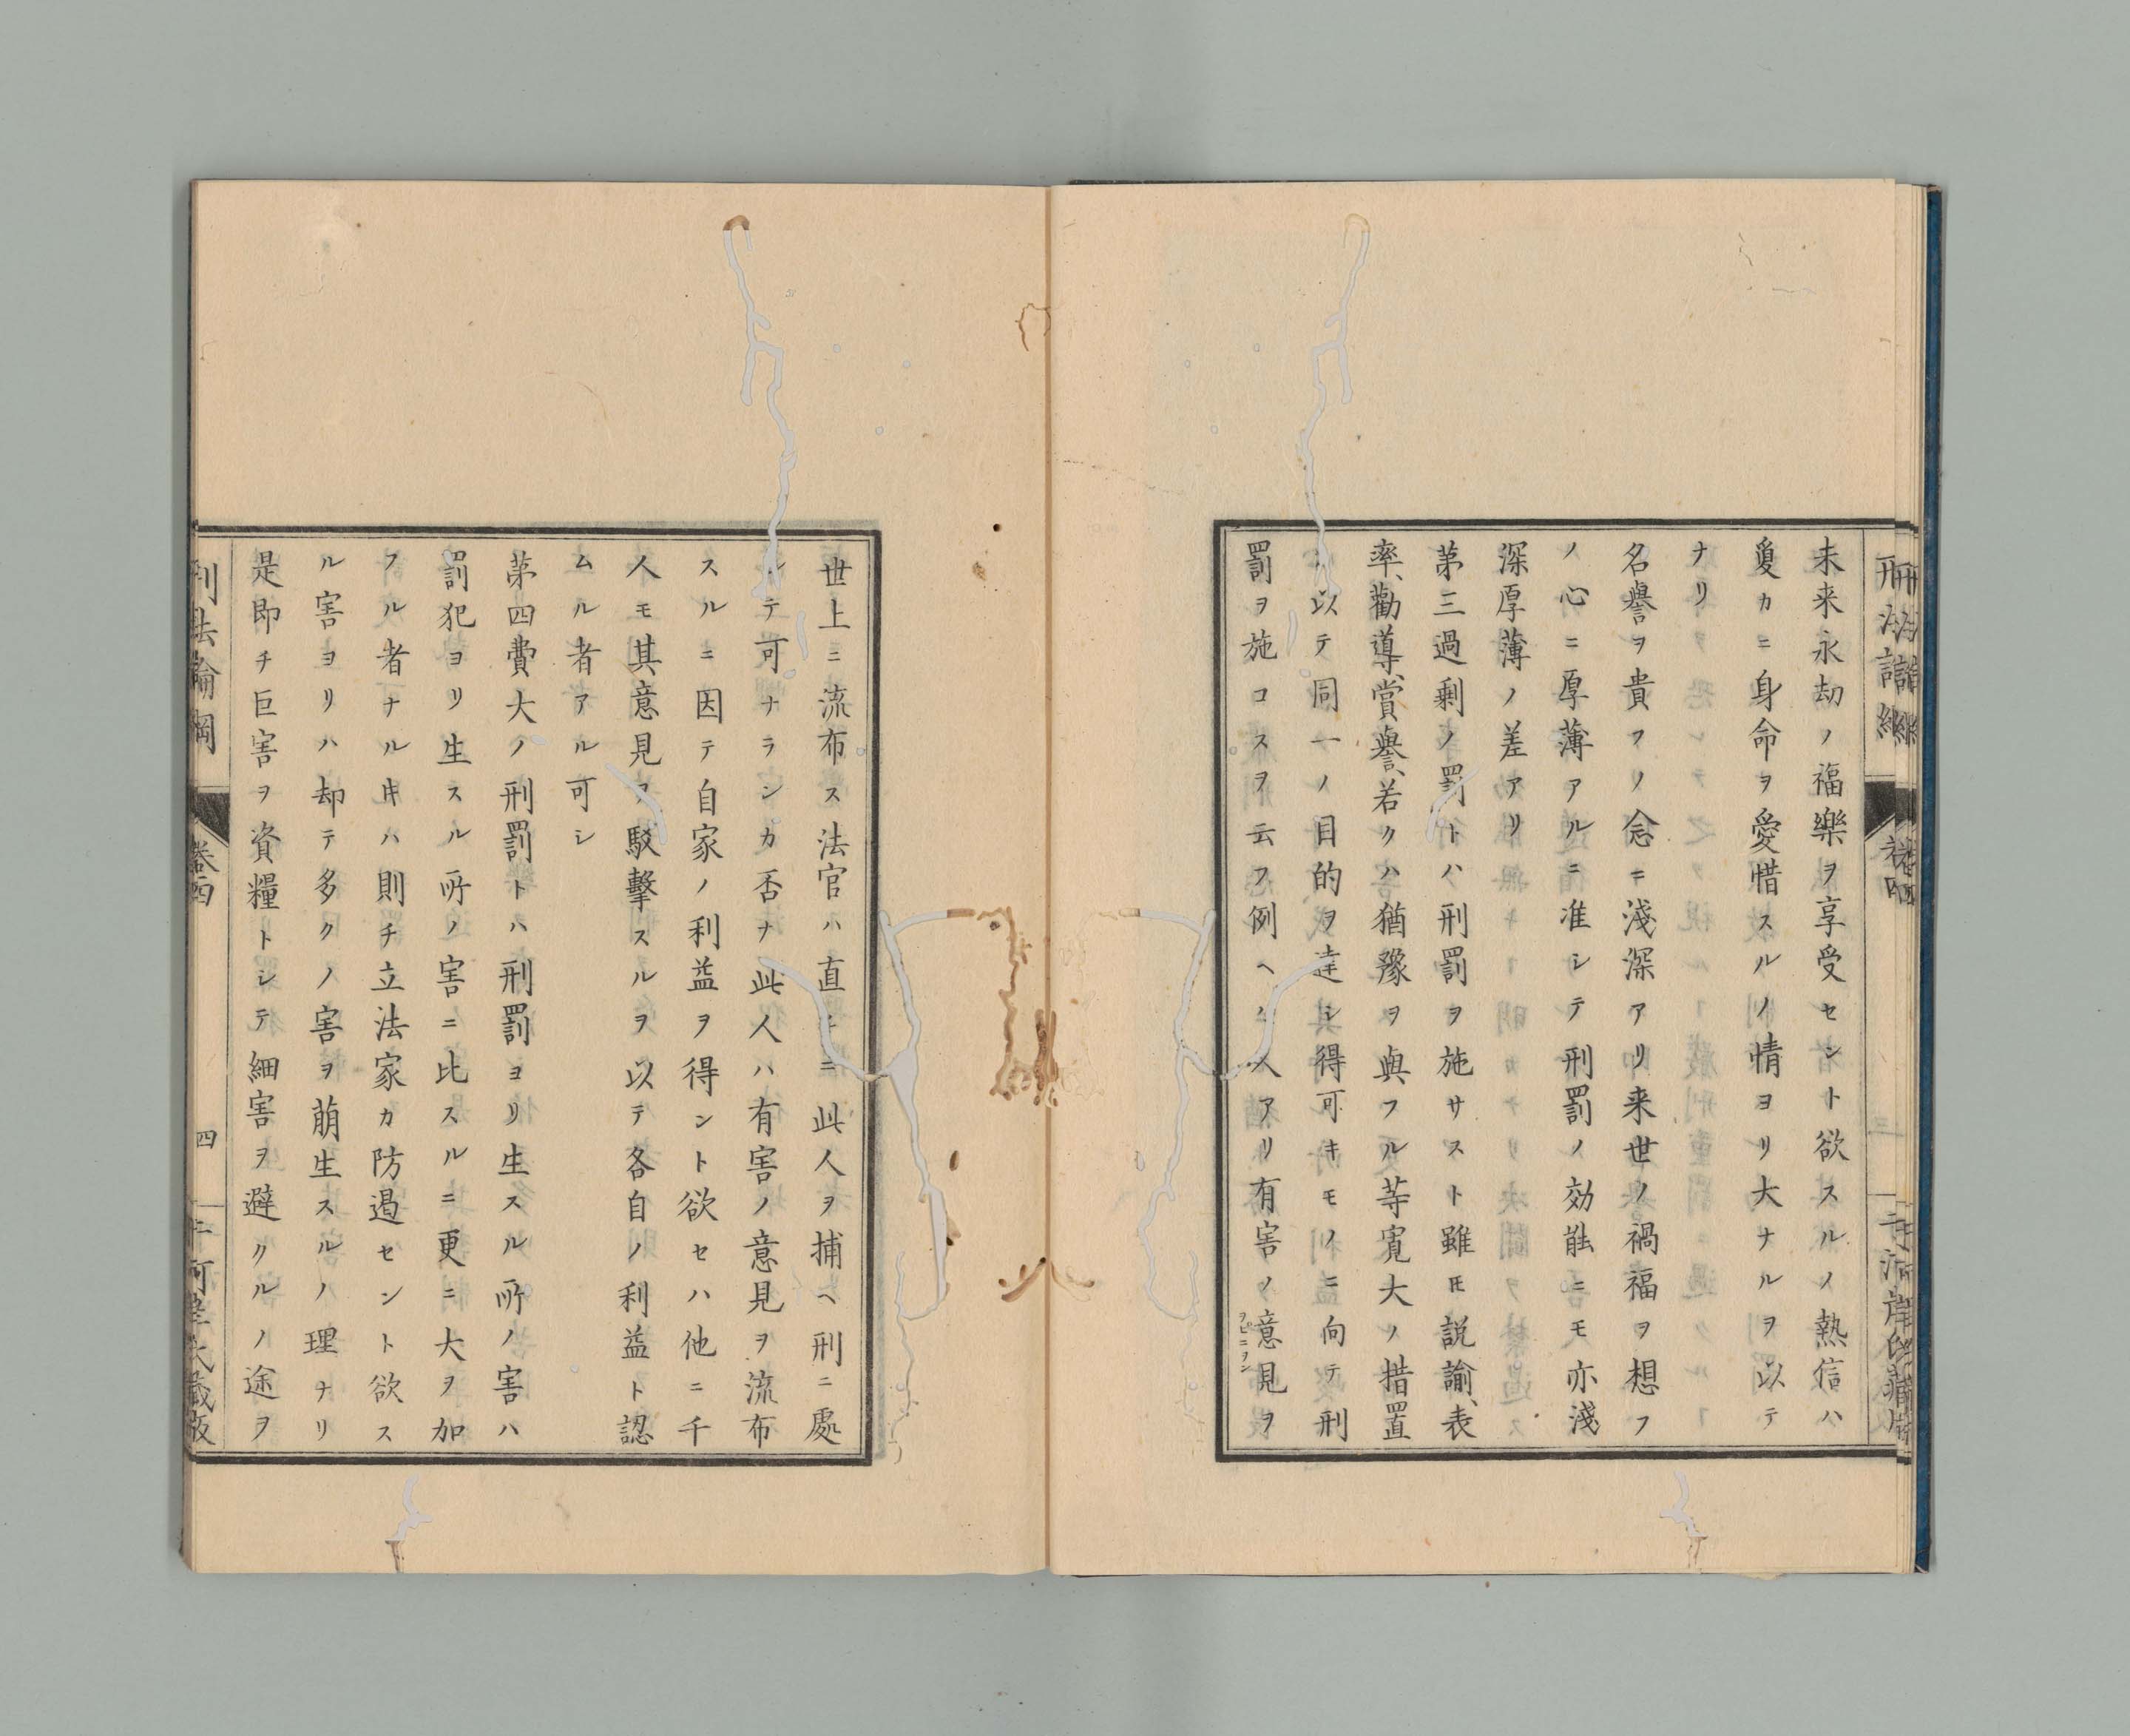 未来永劫ノ福樂ヲ享受セント欲スルノ熱信ハ
敻カニ身命ヲ愛惜スルノ情ヨリ大ナルヲ以テ
ナリ
名譽ヲ貴フノ念ニ淺深アリ来世ノ禍福ヲ想フ
ノ心ニ厚薄アルニ准シテ刑罰ノ効能ニモ亦淺
深厚薄ノ差アリ
第三過剩ノ罰トハ刑罰ヲ施サスト雖𪜈説諭、表
率、勸導、賞譽、若クハ猶豫ヲ與フル等寛大ノ措置
以テ同一ノ目的ヲ達シ得可キモノニ向テ刑
罰ヲ施コスヲ云フ例ヘハ人アリ有害ノ意見ヲ
ヲピニヲン
世上ニ流布ス法官ハ直チニ此人ヲ捕ヘ刑ニ處
シテ可ナランカ否ナ此人ハ有害ノ意見ヲ流布
スルニ因テ自家ノ利益ヲ得ント欲セハ他ニ千
人モ其意見ヲ駁擊スルヲ以テ各自ノ利益ト認
ムル者アル可シ
第四費大ノ刑罰トハ刑罰ヨリ生スル所ノ害ハ
罰犯ヨリ生スル所ノ害ニ比スルニ更ニ大ヲ加
フル者ナル𪜈ハ則チ立法家カ防遏セント欲ス
ル害ヨリハ却テ多クノ害ヲ萌生スルノ理ナリ
是即チ巨害ヲ資糧トシテ細害ヲ避クルノ途ヲ
刑法論綱
卷四
四
千河岸氏藏版